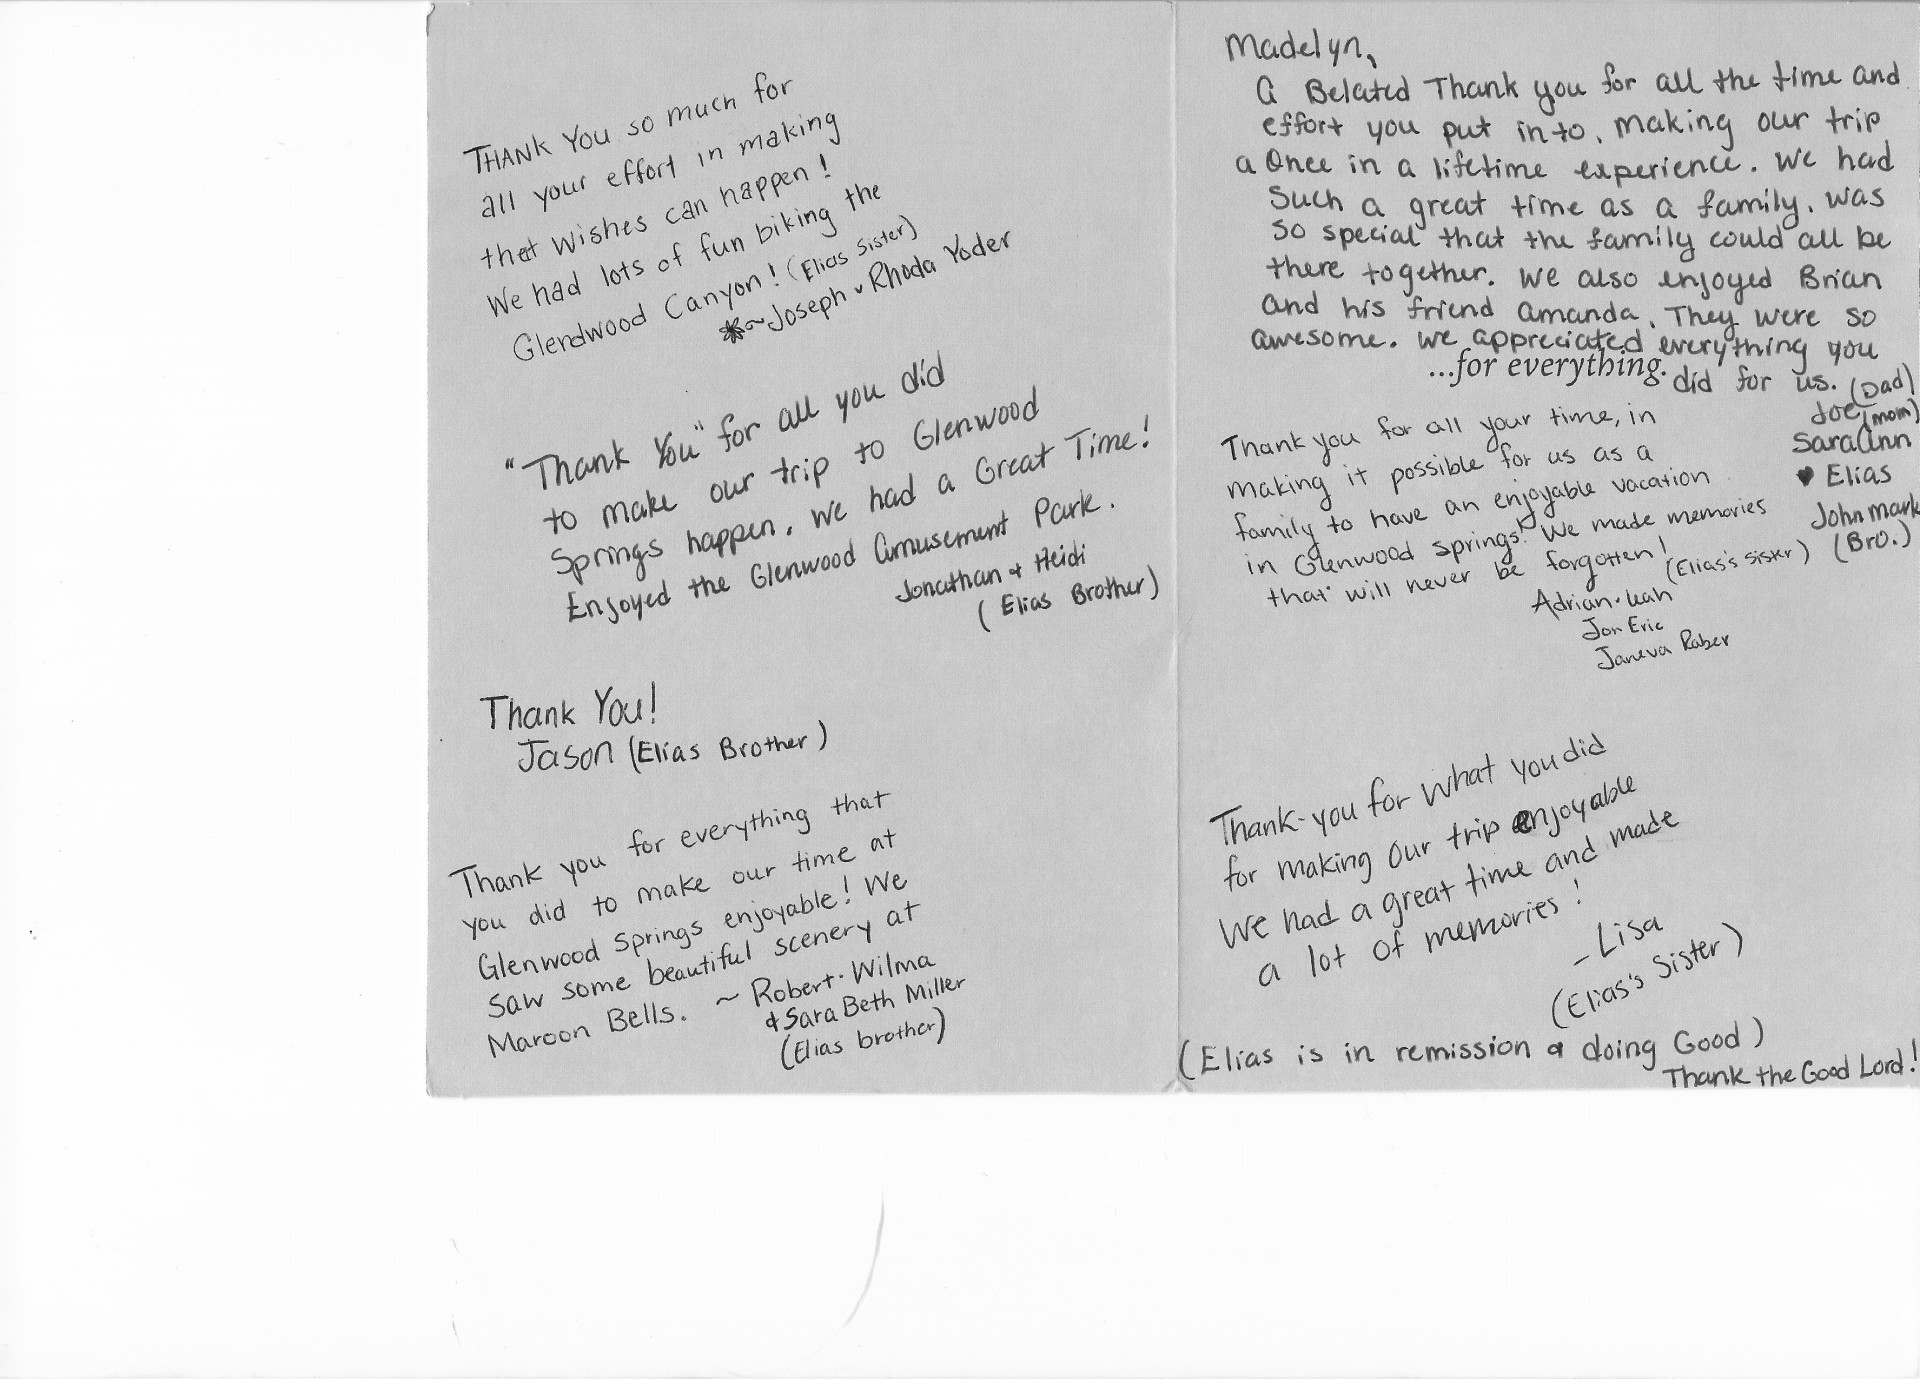 THANK YOU so much for
all your effort in making
that wishes can happen!
We had lots of fun biking the
Glendwood Canyon! (Elias Sister)
~Joseph & Rhoda Yoder
"Thank You" for all you did
to make our trip to Glenwood
Springs happen. We had a Great Time!
Enjoyed the Glenwood Amusement Park.
Jonathan & Heidi
(Elias Brother)
Thank You!
Jason (Elias Brother)
Thank you for everything that
you did to make our time at
Glenwood Springs enjoyable! We
saw some beautiful scenery at
Maroon Bells. ~ Robert · Wilma
& Sara Beth Miller
(Elias brother)
Madelyn,
A Belated Thank you for all the time and
effort you put into, making our trip
a Once in a lifetime experience. We had
such a great time as a family. was
so special that the family could all be
there together. We also enjoyed Brian
and his friend Amanda. They were so
awesome. We appreciated everything you
...for everything.
did for us. (Dad)
Joe (mom)
SaraAnn
♥ Elias
John mark
(Bro.)
Thank you for all your time, in
making it possible for us as a
family to have an enjoyable vacation
in Glenwood Springs! We made memories
that will never be forgotten!
(Elias's sister)
Adrian · Leah
Jon Eric
Janeva Raber
Thank-you for what you did
for making our trip enjoyable
We had a great time and made
a lot of memories!
- Lisa
(Elias's Sister)
(Elias is in remission & doing Good)
Thank the Good Lord!